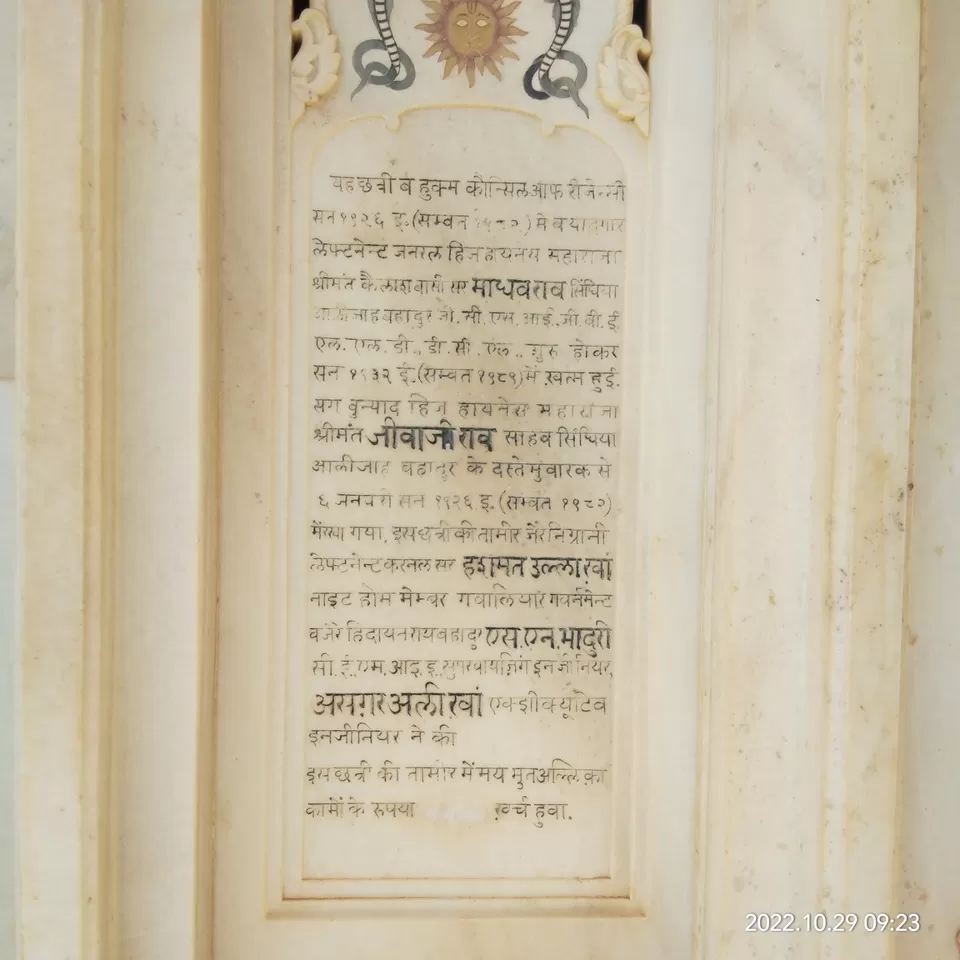 यह छत्री ब हुक्म कौन्सिल आफ रीजेन्सी
सन १९२६ इ. (सम्वत १९८२) मे ब यादगार
लेफ्टनेन्ट जनरल हिज हायनेस महाराजा
श्रीमंत कैलाशबासी सर माधवराव सिंधिया
आलीजाह बहादुर जी. सी. एस. आई. जी. वी. ई.
एल. एल. डी., डी. सी. एल., शुरु होकर
सन १९३२ ई. (सम्वत १९८९) में ख़त्म हुई.
संग बुन्याद हिज हायनेस महाराजा
श्रीमंत जीवाजी राव साहब सिंधिया
आलीजाह बहादुर के दस्ते मुबारक से
६ जनवरी सन १९२६ इ. (सम्वत १९८२)
में रखा गया. इस छत्री की तामीर ज़ेर निग्रानी
लेफ्टनेन्ट करनल सर हशमत उल्ला खां
नाइट होम मेम्बर गवालियार गवर्नमेन्ट
व जेरे हिदायत रायबहादुर एस. एन. भादुरी
सी. ई., एम. आइ. इ. सुपरवायज़िंग इनजीनियर,
असग़र अली ख़ां एक्झीक्यूटिव
इनजीनियर ने की
इस छत्री की तामीर में मय मुतअल्लिक़ा
कामों के रुपया ख़र्च हुवा.
2022.10.29 09:23